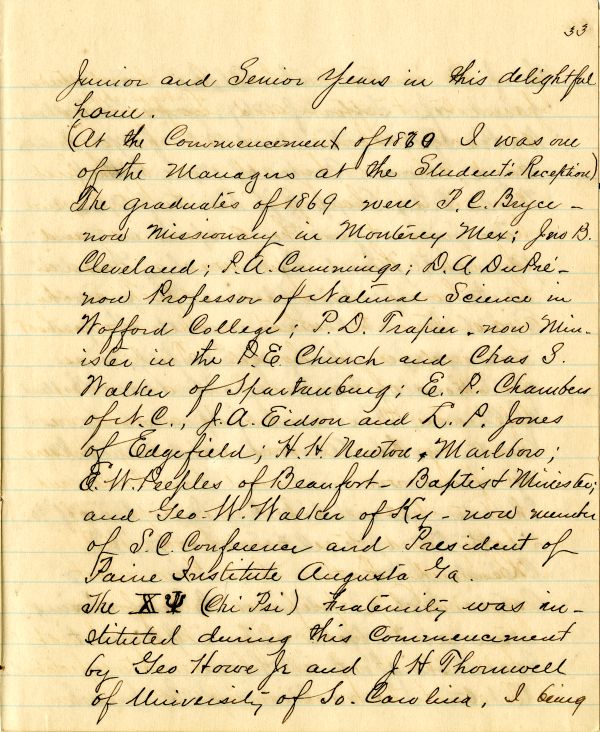 33
Junior and Senior Years in this delightful
home.
(At the Commencement of 1870 I was one
of the Managers at the Student's Reception)
The graduates of 1869 were T. C. Bryce -
now Missionary in Monterey Mex; Jno B.
Cleveland; P. A. Cummings; D. A. DuPré -
now Professor of Natural Science in
Wofford College; P. D. Trapier, now Min-
ister in the P. E. Church and Chas S.
Walker of Spartanburg; E. P. Chambers
of N. C., J. A. Eidson and L. P. Jones
of Edgefield; H. H. Newton, Marlboro;
E. W. Peeples of Beaufort - Baptist Minister;
and Geo. W. Walker of Ky - now member
of S. C. Conference and President of
Paine Institute Augusta Ga.
The Χ Ψ (Chi Psi) Fraternity was in-
stituted during this Commencement
by Geo Howe Jr and J H Thornwell
of University of So. Carolina, I being